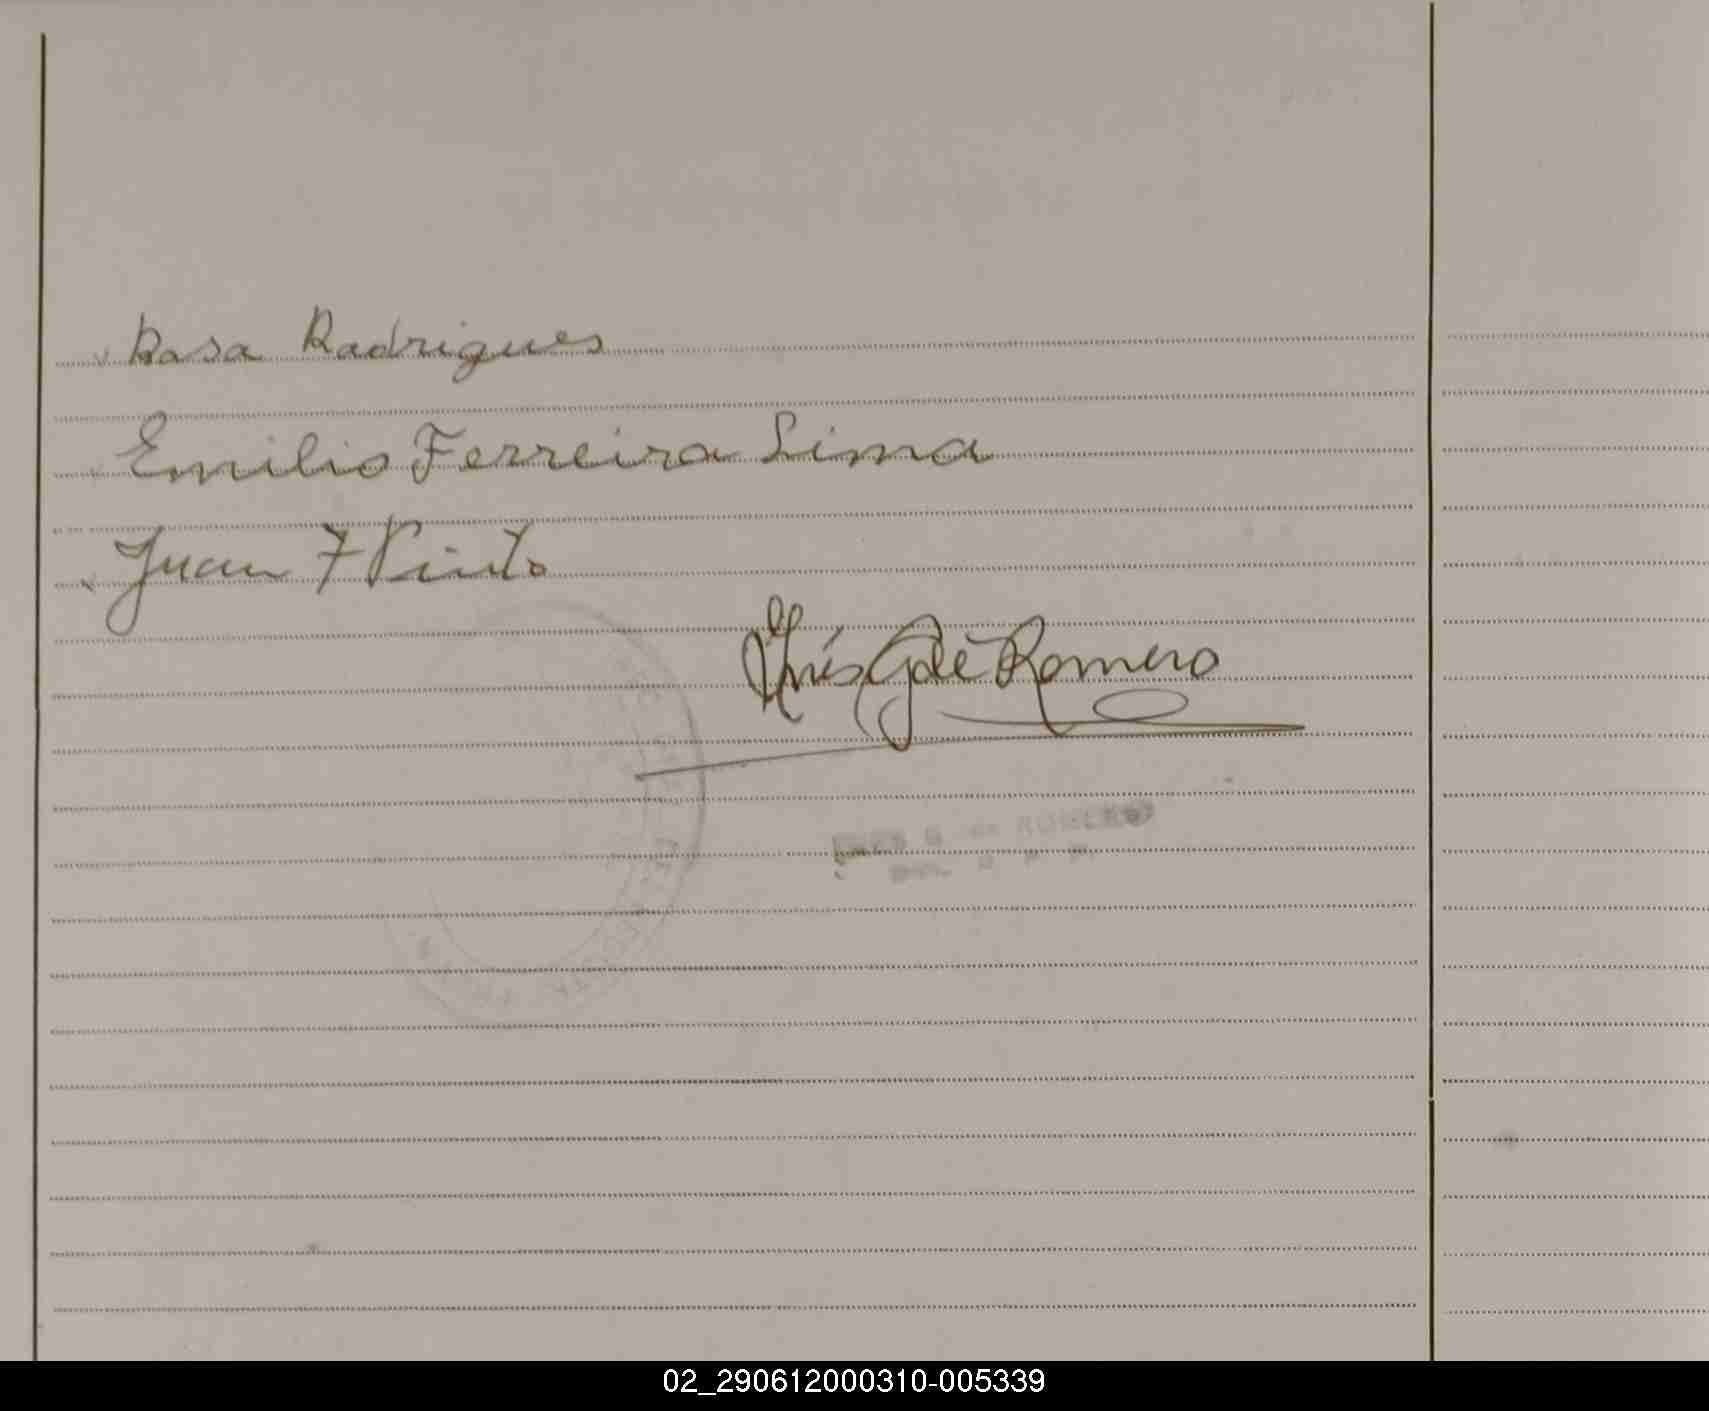 Rasa Radrigues
Emilio Ferreira Lima
Juan F Pinto
Inés G de Romero
ROMERO
02_290612000310-005339